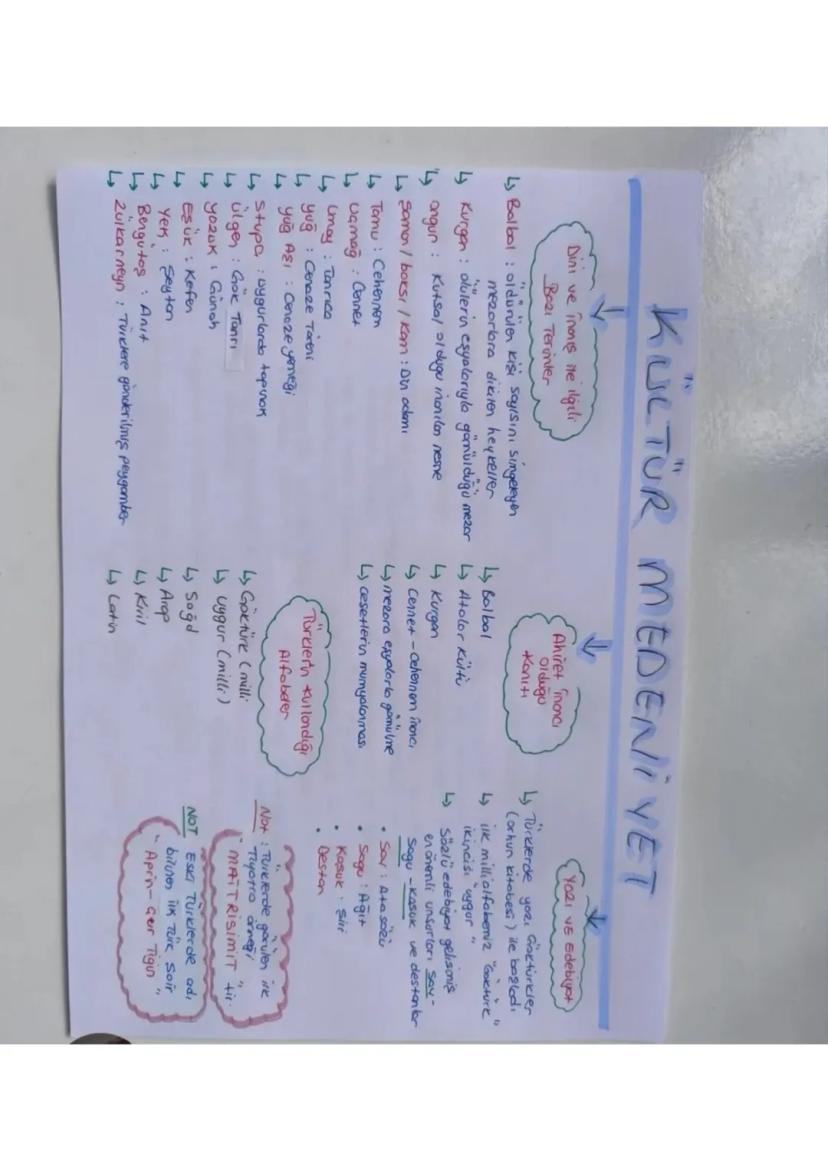 KÜLTÜR MEDENİYET
Dini ve İnanış ile ilgili
Bazı Terimler
↳ Balbal : öldürülen kişi sayısını simgeleyen
mezarlara dikilen heykeller
↳ Kurgan : ölülerin eşyalarıyla gömüldüğü mezar
↳ ongun : Kutsal olduğu inanılan nesne
↳ Şaman / baksı / Kam : Din adamı
↳ Tamu : Cehennem
↳ Uçmağ : Cennet
↳ Umay : Tanrıça
↳ yuğ : Cenaze Töreni
↳ yuğ Aşı : Cenaze yemeği
↳ Stupa : uygurlarda tapınak
↳ ülgen : Gök Tanrı
↳ yazuk : Günah
↳ Eşük : Kefen
↳ Yek : Şeytan
↳ Bengütaş : Anıt
↳ Zülkarneyn : Türklere gönderilmiş peygamber
Ahiret inancı
olduğu
Kanıtı
↳ Balbal
↳ Atalar Kültü
↳ Kurgan
↳ Cennet - Cehennem inancı
↳ mezara eşyalarla gömülme
↳ cesetlerin mumyalanması
Türklerin Kullandığı
Alfabeler
↳ Göktürk (milli
↳ uygur (milli)
↳ Soğd
↳ Arap
↳ Kiril
↳ Latin
Yazı ve Edebiyat
↳ Türklerde yazı Göktürkler
(orhun kitabesi) ile başladı
↳ ilk milli alfabemiz "Göktürk"
ikincisi "uygur"
↳ Sözlü edebiyat gelişmiş
en önemli unsurları Sav -
Sagu - Koşuk ve destanlar
• Sav : Atasözü
• Sagu : Ağıt
• Koşuk : Şiir
• Destan
Not : Türklerde görülen ilk
Tiyatro örneği
"MAİTRİSİMİT" tir.
NOT Eski Türklerde adı
bilinen ilk Türk Şair
"Aprın - Çor Tigin"